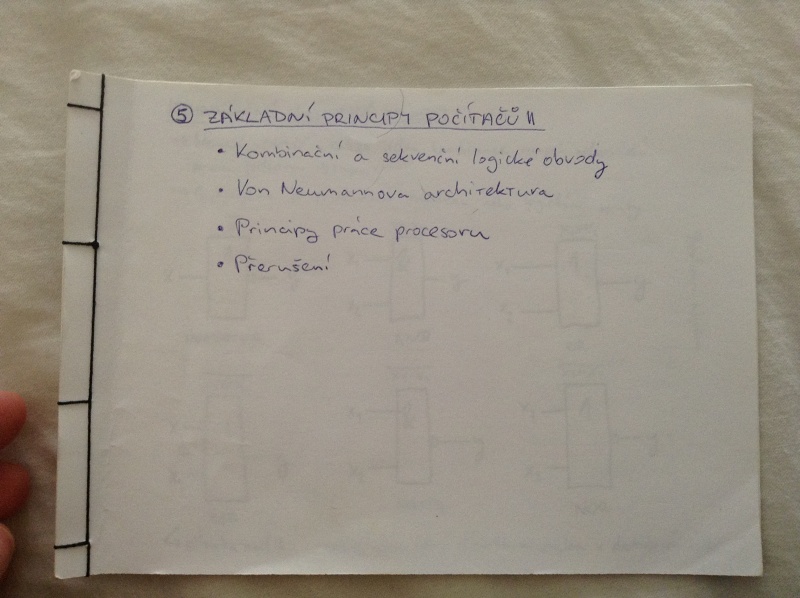 ⑤ ZÁKLADNÍ PRINCIPY POČÍTAČŮ II
• Kombinační a sekvenční logické obvody
• Von Neumannova architektura
• Principy práce procesoru
• Přerušení